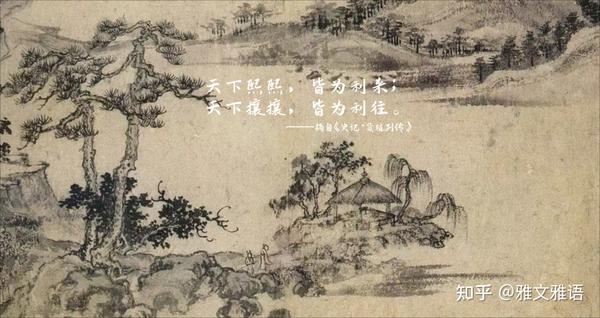 天下熙熙，皆为利来；
天下攘攘，皆为利往。
——摘自《史记·货殖列传》
知乎 @雅文雅语